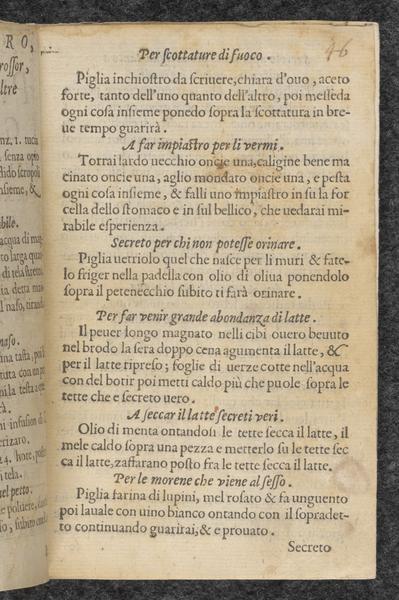 RO,
rossor,
ltre
nz. 1. tucia
senza opio
nsieme, &
obile.
acqua di mag-
to larga quan
di tela stretta
lia detta ma-
l naso, tirando
naso.
ina tasta, poi
tuta con un po
ni la testa a que
rà.
ni infusion di
erizaro.
24. hore, poi
i tela.
nel petto.
e poluere,
so, subito
46
Per scottature di fuoco.
Piglia inchiostro da scriuere, chiara d'ouo, aceto
forte, tanto dell'uno quanto dell'altro, poi messeda
ogni cosa insieme ponẽdo sopra la scottatura in bre-
ue tempo guarirà.
A far impiastro per li vermi.
Torrai lardo uecchio oncie una, caligine bene ma
cinato oncie una, aglio mondato oncie una, e pesta
ogni cosa insieme, & falli uno impiastro in su la for
cella dello stomaco e in sul bellico, che uedarai mi-
rabile esperienza.
Secreto per chi non potesse orinare.
Piglia uetriolo quel che nasce per li muri & fate-
lo friger nella padella con olio di oliua ponendolo
sopra il petenecchio subito ti farà orinare.
Per far venir grande abondanza di latte.
Il peuer longo magnato nelli cibi ouero beuuto
nel brodo la sera doppo cena agumenta il latte, &
per il latte ripreso; foglie di uerze cotte nell'acqua
con del botir poi metti caldo più che puole sopra le
tette che e secreto uero.
A seccar il latte secreti veri.
Olio di menta ontandosi le tette secca il latte, il
mele caldo sopra una pezza e metterlo su le tette sec
ca il latte, zaffarano posto fra le tette secca il latte.
Per le morene che viene al sesso.
Piglia farina di lupini, mel rosato & fa unguento
poi lauale con uino bianco ontando con il sopradet-
to continuando guarirai, & e prouato.
Secreto